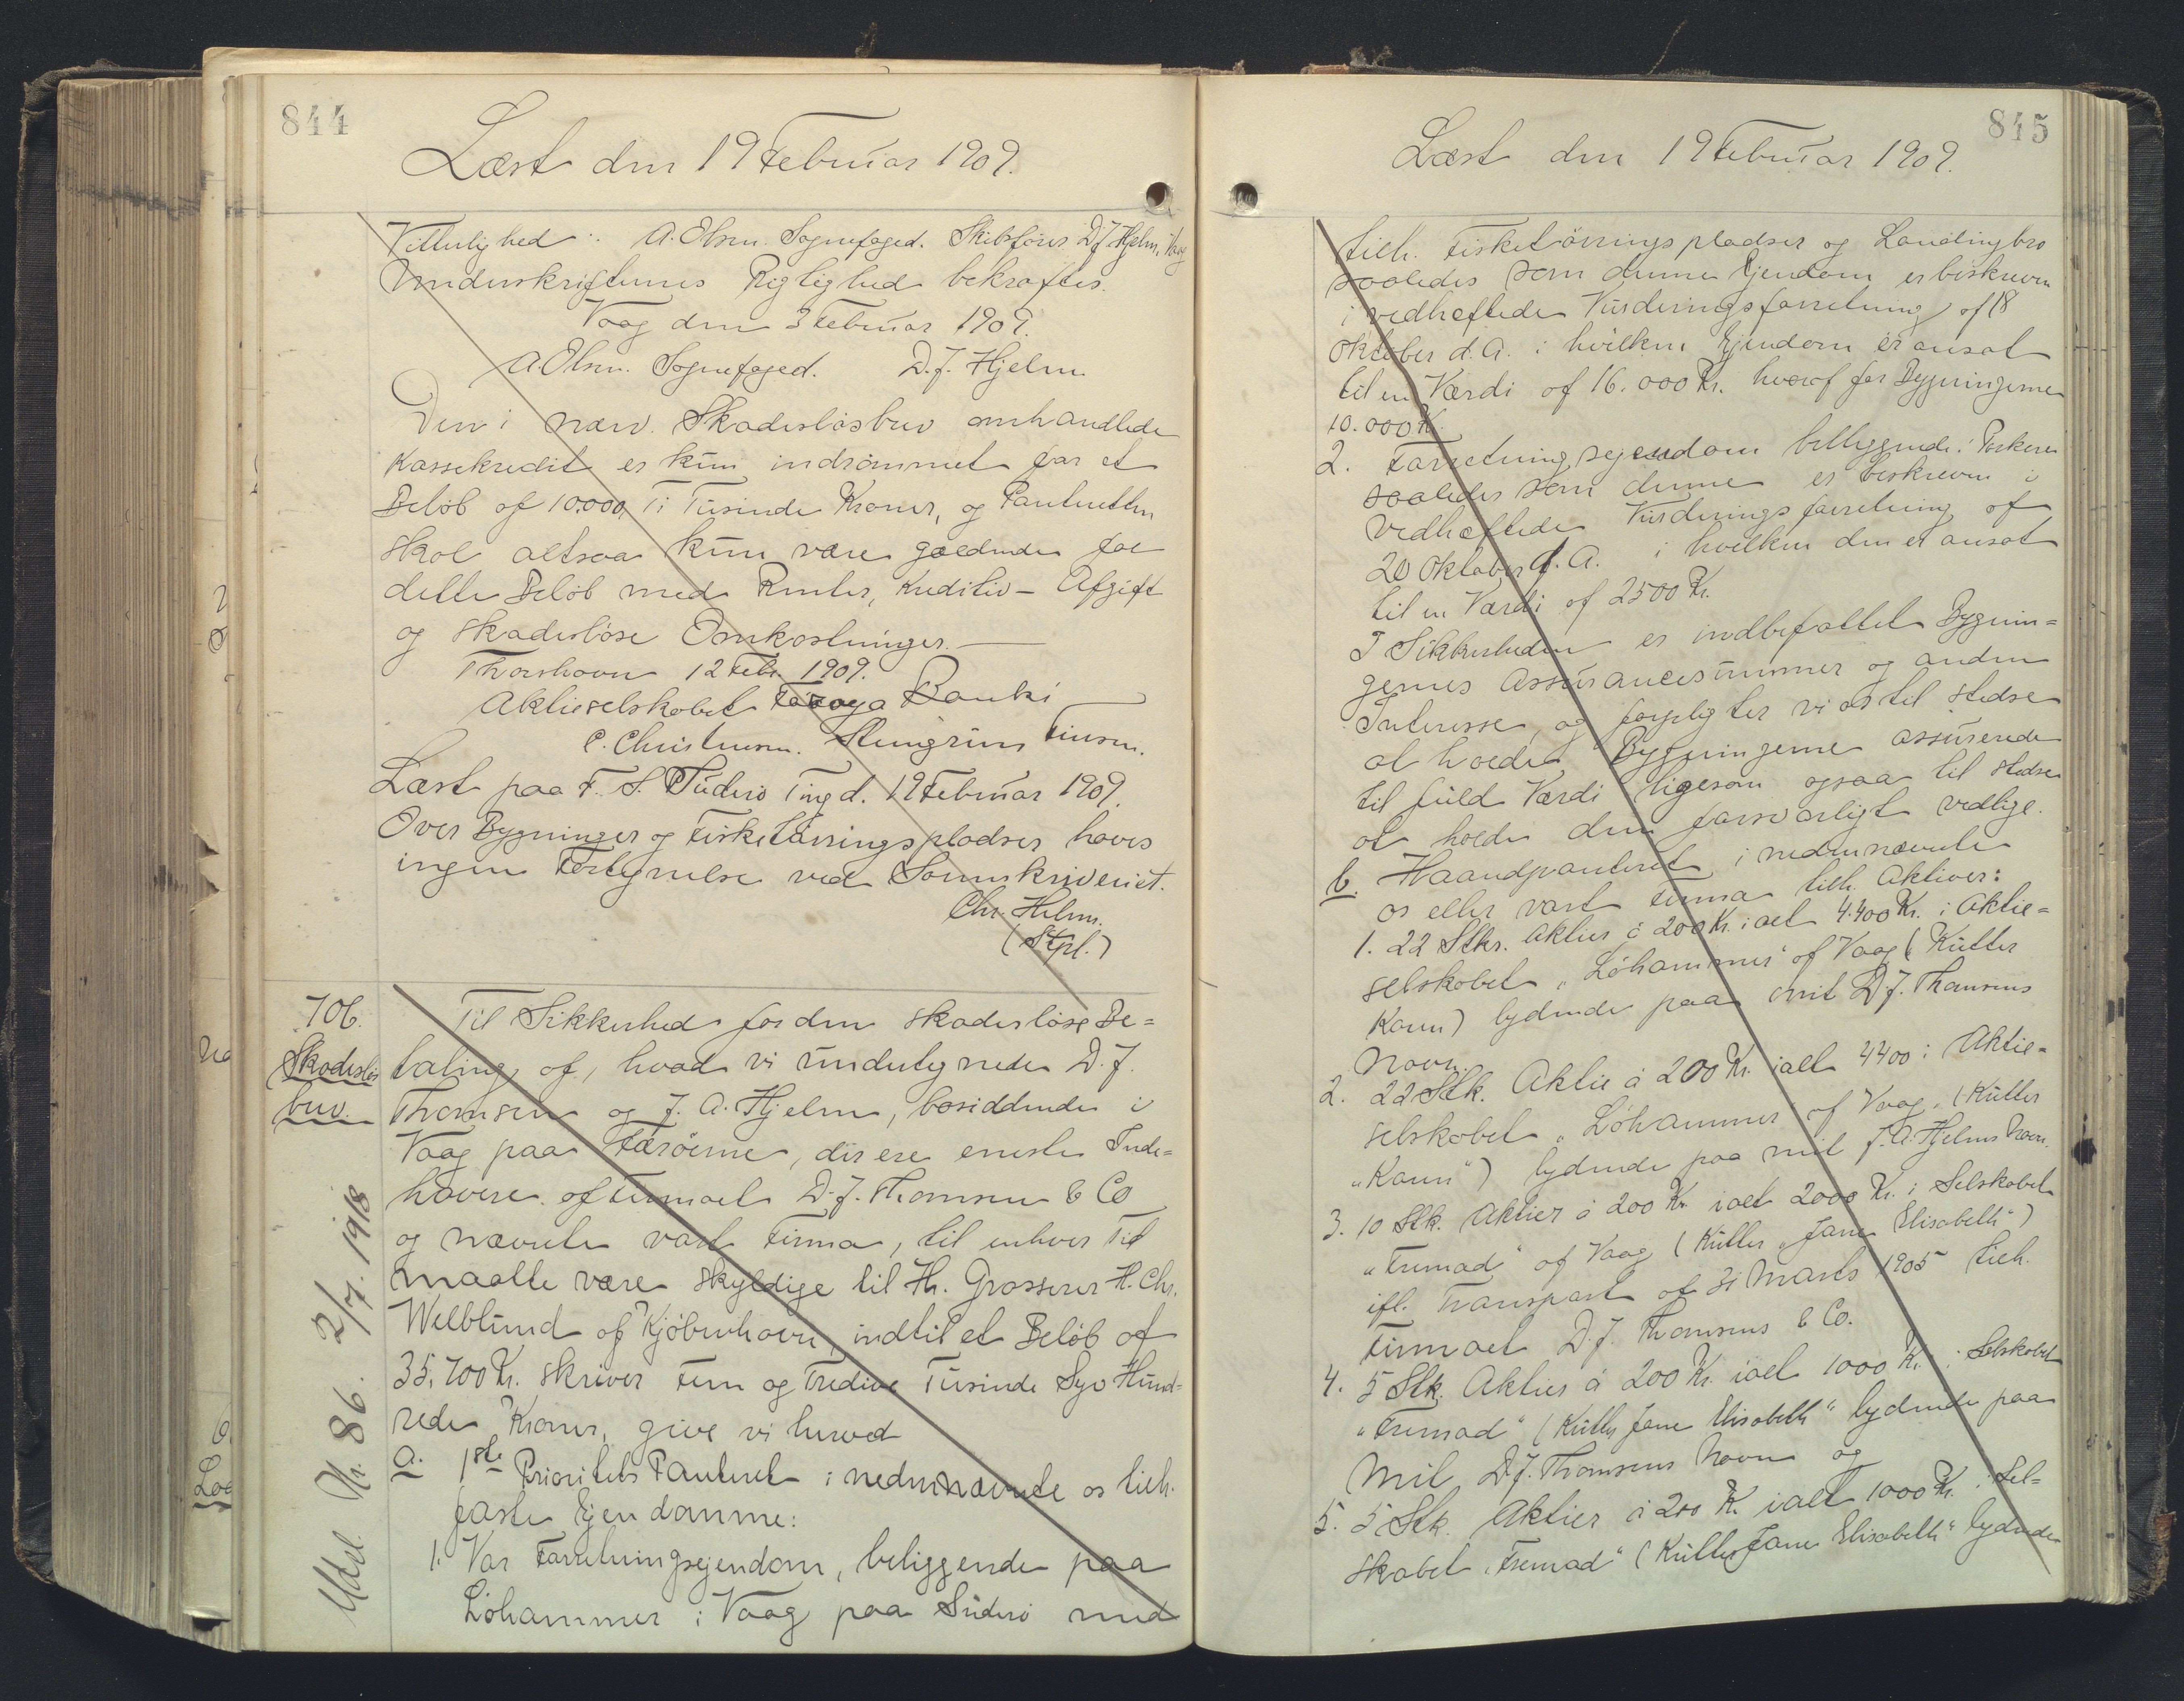 844
Læst den 19 Februar 1909.
Vitterlighed: A. Olsen Sognefoged. Skibsfører D. J. Hjelm, Vaag
Underskrifternes Rigtighed bekræftes.
Vaag den 3 Februar 1909.
A Olsen. Sognefoged. D. J. Hjelm.
Den i nærv. Skadesløsbrev omhandlede
Kassekredit er kun indrømmet for et
Beløb af 10.000, Ti Tusinde Kroner, og Panteretten
skal altsaa kun være gældende for
dette Beløb med Renter, Kreditiv- Afgift
og skadesløse Omkostninger. —
Thorshavn 12 Febr. 1909.
Aktieselskabet Føroya Banki
C. Christensen.
Læst paa F. S. Suderø Ting d. 19 Februar 1909.
Over Bygninger og Fisketørringspladser haves
ingen Hjemmel ved Sorenskriveriet.
Chr. Holm.
(Stpl.)
706.
Skadesløs
brev.
Udsl. Nr. 86. 2/7. 1918
Til Sikkerhed for den skadesløse Be=
taling af, hvad vi undertegnede D. J.
Thomsen og J. A. Hjelm, bosiddende i
Vaag paa Færøerne, der ere eneste Inde=
havere af Firmaet D. J. Thomsen & Co
og nævnte vort Firma, til enhver Tid
maatte være skyldige til Hr. Grosserer H. Chr.
Welblund af Kjøbenhavn, indtil et Beløb af
35,700 Kr. skriver Fem og Tredive Tusinde Syv Hund=
rede Kroner, give vi herved
a. 1ste Prioritets Panteret i nedennævnte os tilh.
faste Ejendomme:
1. Vor Forretningsejendom, beliggende paa
Løhammer i Vaag paa Suderø med
845
Læst den 19 Februar 1909.
tilh. Fisketørringspladser og Landingbro
saaledes som denne Ejendom er beskreven
i vedhæftede Vurderingsforretning af 18
Oktober d. A. i hvilken Ejendom er ansat
til en Værdi af 16.000 Kr. hvoraf for Bygningerne
10.000 Kr.
2. Forretningsejendom beliggende i Porkere
saaledes som denne er beskreven i
vedhæftede Vurderingsforretning af
20 Oktober d. A. i hvilken den er ansat
til en Værdi af 2500 Kr.
I Sikkerheden er indbefattet Bygnin=
gernes Assurancesummer og anden
Interesse, og forpligter vi os til stedse
at holde Bygningerne assurerede
til fuld Værdi ligesom ogsaa til stedse
at holde dem forsvarligt vedlige.
b. Haandpanteret i nedennævnte
os eller vort Firma tilh. Aktiver:
1. 22 Stkr. Aktier à 200 Kr. ialt 4.400 Kr. i Aktie=
selskabet „Løhammer" af Vaag (Kutter
Karen) lydende paa mit D. J. Thomsens
Navn.
2. 22 Stk. Aktie à 200 Kr. ialt 4400 i Aktie=
selskabet „Løhammer" af Vaag. (Kutter
„Karen") lydende paa mit J. A. Hjelms Navn.
3. 10 Stk. Aktier à 200 Kr. ialt 2000 Kr. i Selskabet
„Fremad" af Vaag (Kutter „Jane Elisabeth")
ifl. Transport af 31 Marts 1905 tilh.
Firmaet D. J. Thomsens & Co.
4. 5 Stk. Aktier à 200 Kr. ialt 1000 Kr. i Selskabet
„Fremad" (Kutter Jane Elisabeth" lydende paa
mit D. J. Thomsens Navn og
5. 5 Stk. Aktier à 200 Kr. ialt 1000 Kr. i Sel=
skabet „Fremad" (Kutter Jane Elisabeth" lydende